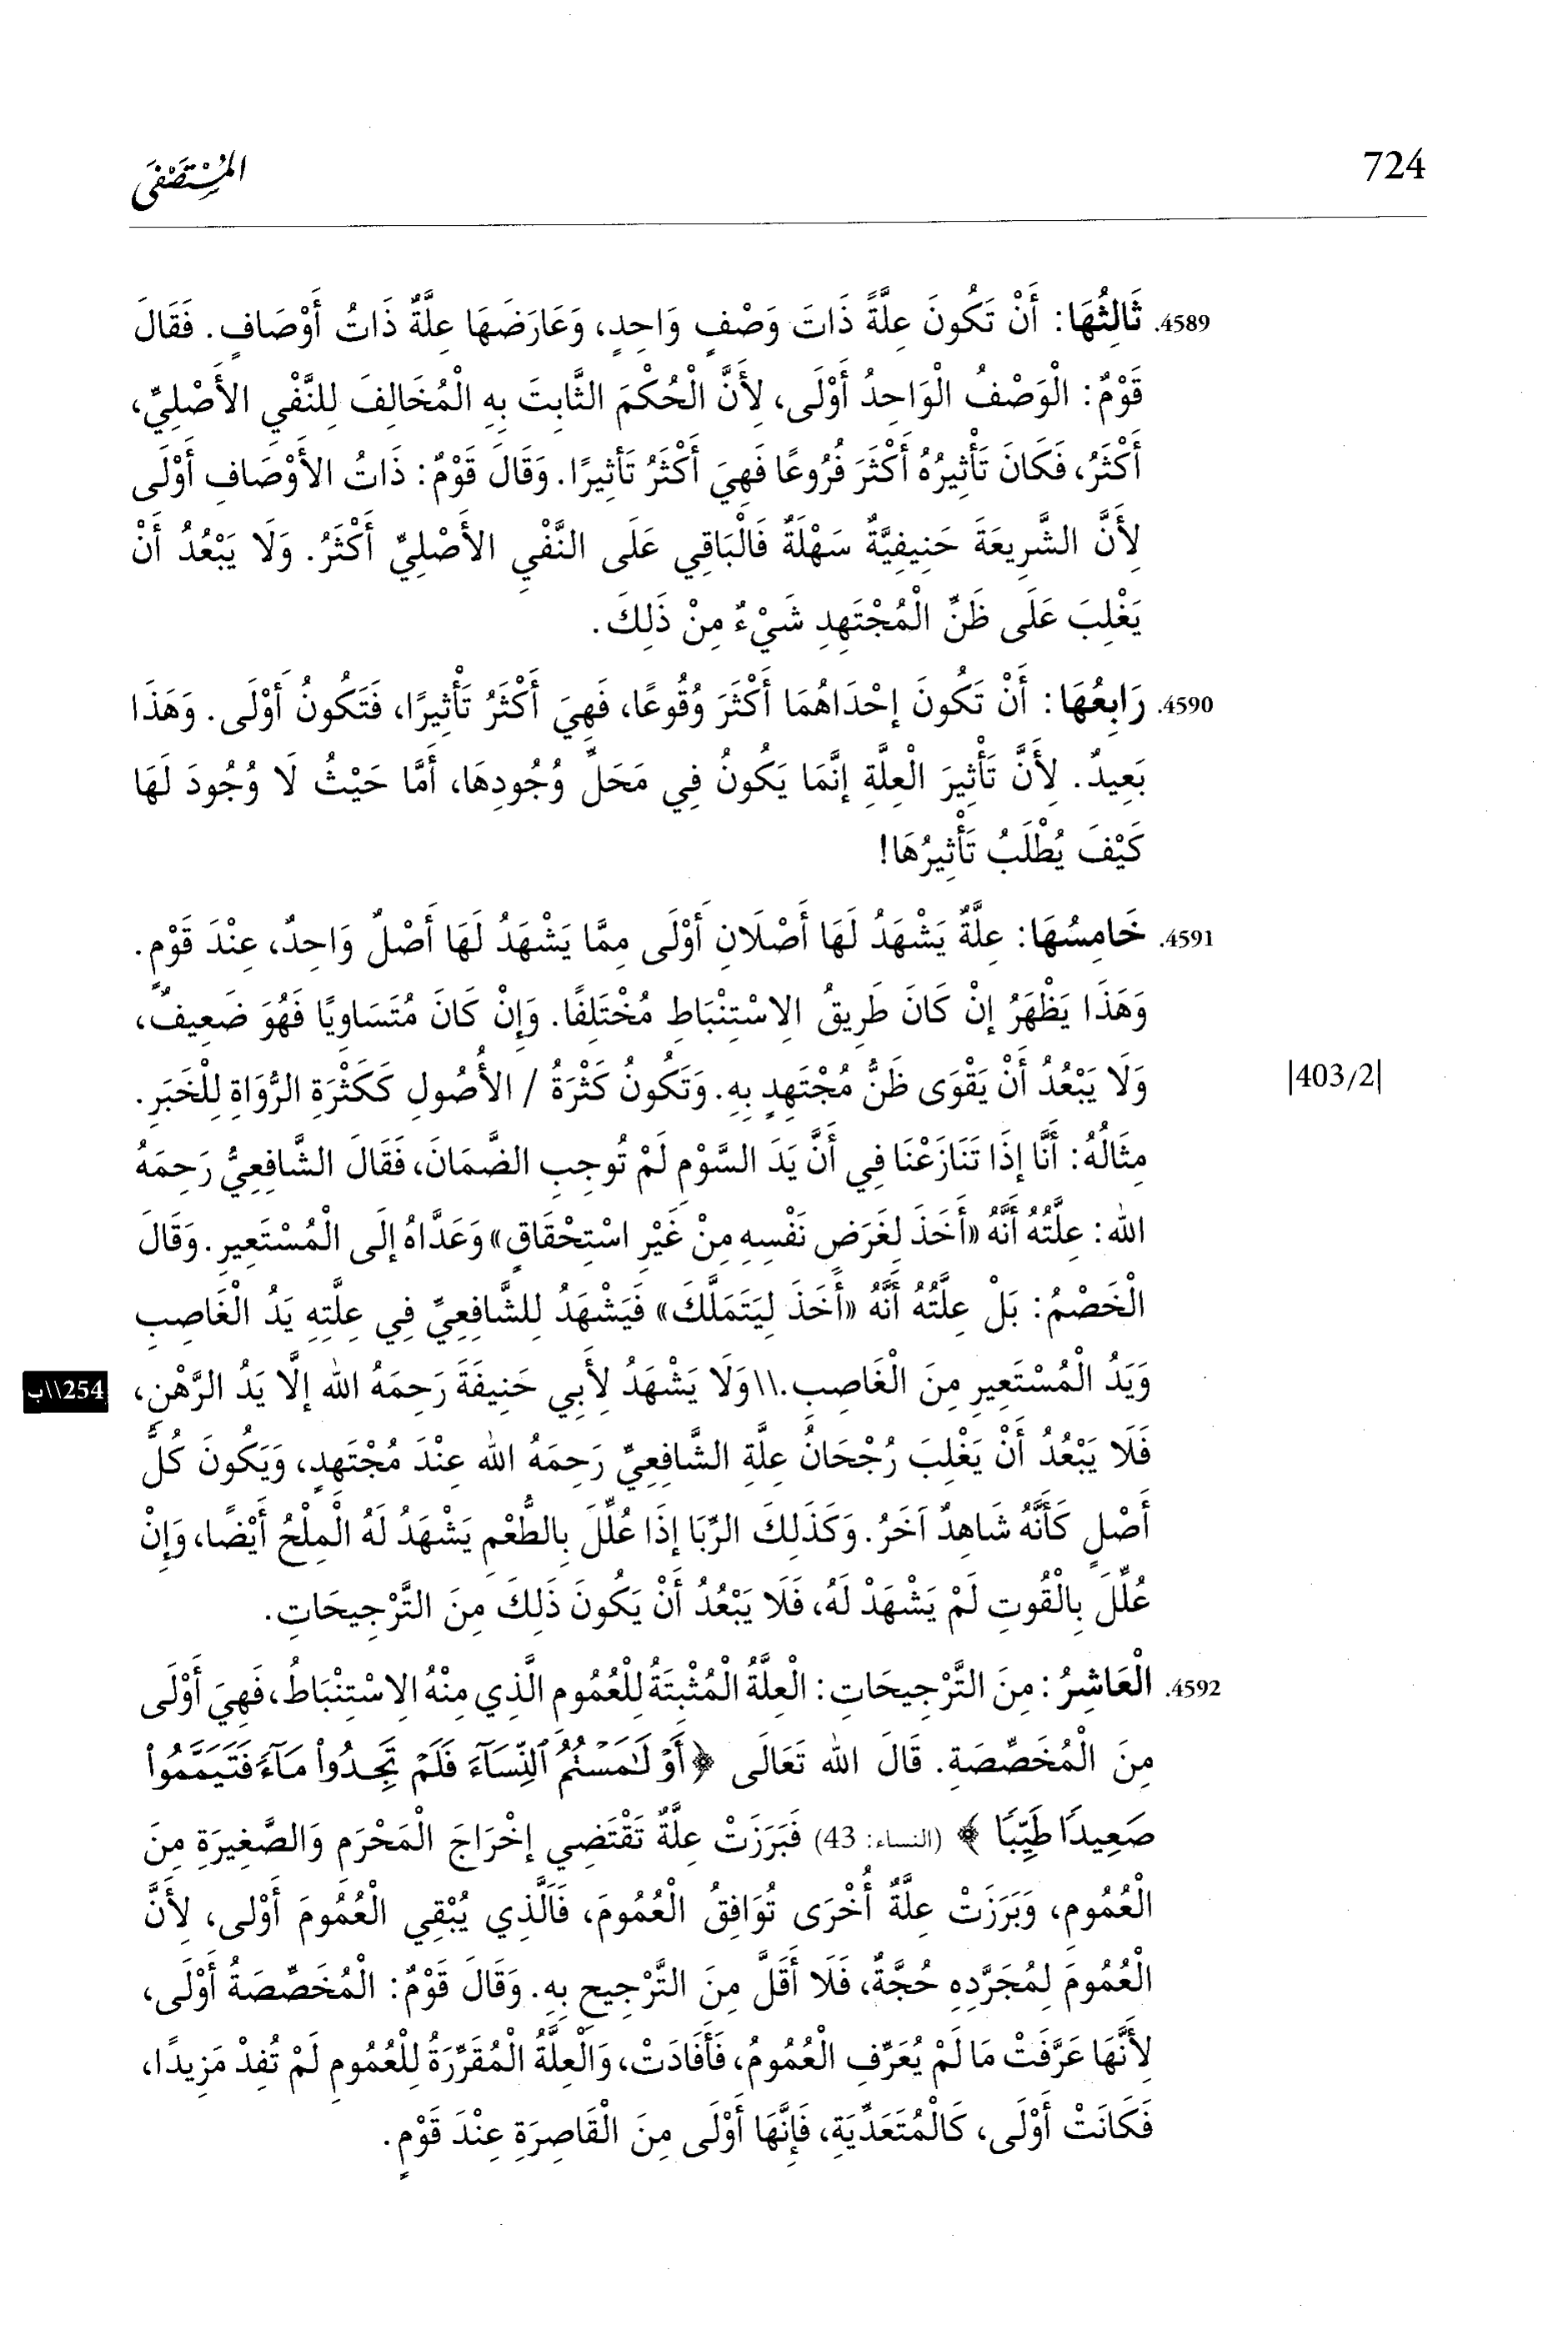 724
المُسْتَصْفَى
4589. ثَالِثُهَا: أَنْ تَكُونَ عِلَّةً ذَاتَ وَصْفٍ وَاحِدٍ، وَعَارَضَهَا عِلَّةٌ ذَاتُ أَوْصَافٍ. فَقَالَ
قَوْمٌ: الْوَصْفُ الْوَاحِدُ أَوْلَى، لِأَنَّ الْحُكْمَ الثَّابِتَ بِهِ الْمُخَالِفَ لِلنَّفْيِ الأَصْلِيِّ،
أَكْثَرُ، فَكَانَ تَأْثِيرُهُ أَكْثَرَ فُرُوعًا فَهِيَ أَكْثَرُ تَأْثِيرًا. وَقَالَ قَوْمٌ: ذَاتُ الأَوْصَافِ أَوْلَى
لِأَنَّ الشَّرِيعَةَ حَنِيفِيَّةٌ سَهْلَةٌ فَالْبَاقِي عَلَى النَّفْيِ الأَصْلِيِّ أَكْثَرُ. وَلَا يَبْعُدُ أَنْ
يَغْلِبَ عَلَى ظَنِّ الْمُجْتَهِدِ شَيْءٌ مِنْ ذَلِكَ.
4590. رَابِعُهَا: أَنْ تَكُونَ إِحْدَاهُمَا أَكْثَرَ وُقُوعًا، فَهِيَ أَكْثَرُ تَأْثِيرًا، فَتَكُونُ أَوْلَى. وَهَذَا
بَعِيدٌ. لِأَنَّ تَأْثِيرَ الْعِلَّةِ إِنَّمَا يَكُونُ فِي مَحَلِّ وُجُودِهَا، أَمَّا حَيْثُ لَا وُجُودَ لَهَا
كَيْفَ يُطْلَبُ تَأْثِيرُهَا!
4591. خَامِسُهَا: عِلَّةٌ يَشْهَدُ لَهَا أَصْلَانِ أَوْلَى مِمَّا يَشْهَدُ لَهَا أَصْلٌ وَاحِدٌ، عِنْدَ قَوْمٍ.
وَهَذَا يَظْهَرُ إِنْ كَانَ طَرِيقُ الِاسْتِنْبَاطِ مُخْتَلِفًا. وَإِنْ كَانَ مُتَسَاوِيًا فَهُوَ ضَعِيفٌ،
وَلَا يَبْعُدُ أَنْ يَقْوَى ظَنُّ مُجْتَهِدٍ بِهِ. وَتَكُونُ كَثْرَةُ / الأُصُولِ كَكَثْرَةِ الرُّوَاةِ لِلْخَبَرِ.
|403/2|
مِثَالُهُ: أَنَّا إِذَا تَنَازَعْنَا فِي أَنَّ يَدَ السَّوْمِ لَمْ تُوجِبِ الضَّمَانَ، فَقَالَ الشَّافِعِيُّ رَحِمَهُ
الله: عِلَّتُهُ أَنَّهُ «أَخَذَ لِغَرَضِ نَفْسِهِ مِنْ غَيْرِ اسْتِحْقَاقٍ» وَعَدَّاهُ إِلَى الْمُسْتَعِيرِ. وَقَالَ
الْخَصْمُ: بَلْ عِلَّتُهُ أَنَّهُ «أَخَذَ لِيَتَمَلَّكَ» فَيَشْهَدُ لِلشَّافِعِيِّ فِي عِلَّتِهِ يَدُ الْغَاصِبِ
وَيَدُ الْمُسْتَعِيرِ مِنَ الْغَاصِبِ.\\ وَلَا يَشْهَدُ لِأَبِي حَنِيفَةَ رَحِمَهُ الله إِلَّا يَدُ الرَّهْنِ،
254\\ب
فَلَا يَبْعُدُ أَنْ يَغْلِبَ رُجْحَانُ عِلَّةِ الشَّافِعِيِّ رَحِمَهُ الله عِنْدَ مُجْتَهِدٍ، وَيَكُونَ كُلُّ
أَصْلٍ كَأَنَّهُ شَاهِدٌ آخَرُ. وَكَذَلِكَ الرِّبَا إِذَا عُلِّلَ بِالطُّعْمِ يَشْهَدُ لَهُ الْمِلْحُ أَيْضًا، وَإِنْ
عُلِّلَ بِالْقُوتِ لَمْ يَشْهَدْ لَهُ، فَلَا يَبْعُدُ أَنْ يَكُونَ ذَلِكَ مِنَ التَّرْجِيحَاتِ.
4592. الْعَاشِرُ: مِنَ التَّرْجِيحَاتِ: الْعِلَّةُ الْمُثْبَتَةُ لِلْعُمُومِ الَّذِي مِنْهُ الِاسْتِنْبَاطُ، فَهِيَ أَوْلَى
مِنَ الْمُخَصِّصَةِ. قَالَ الله تَعَالَى ﴿أَوْ لَٰمَسْتُمُ ٱلنِّسَآءَ فَلَمْ تَجِدُوا۟ مَآءً فَتَيَمَّمُوا۟
صَعِيدًا طَيِّبًا ﴾ (النساء: 43) فَبَرَزَتْ عِلَّةٌ تَقْتَضِي إِخْرَاجَ الْمَحْرَمِ وَالصَّغِيرَةِ مِنَ
الْعُمُومِ، وَبَرَزَتْ عِلَّةٌ أُخْرَى تُوَافِقُ الْعُمُومَ، فَالَّذِي يُبْقِي الْعُمُومَ أَوْلى، لِأَنَّ
الْعُمُومَ لِمُجَرَّدِهِ حُجَّةٌ، فَلَا أَقَلَّ مِنَ التَّرْجِيحِ بِهِ. وَقَالَ قَوْمٌ: الْمُخَصِّصَةُ أَوْلَى،
لِأَنَّهَا عَرَّفَتْ مَا لَمْ يُعَرِّفِ الْعُمُومُ، فَأَفَادَتْ، وَالْعِلَّةُ الْمُقَرِّرَةُ لِلْعُمُومِ لَمْ تُفِدْ مَزِيدًا،
فَكَانَتْ أَوْلَى، كَالْمُتَعَدِّيَةِ، فَإِنَّهَا أَوْلَى مِنَ الْقَاصِرَةِ عِنْدَ قَوْمٍ.